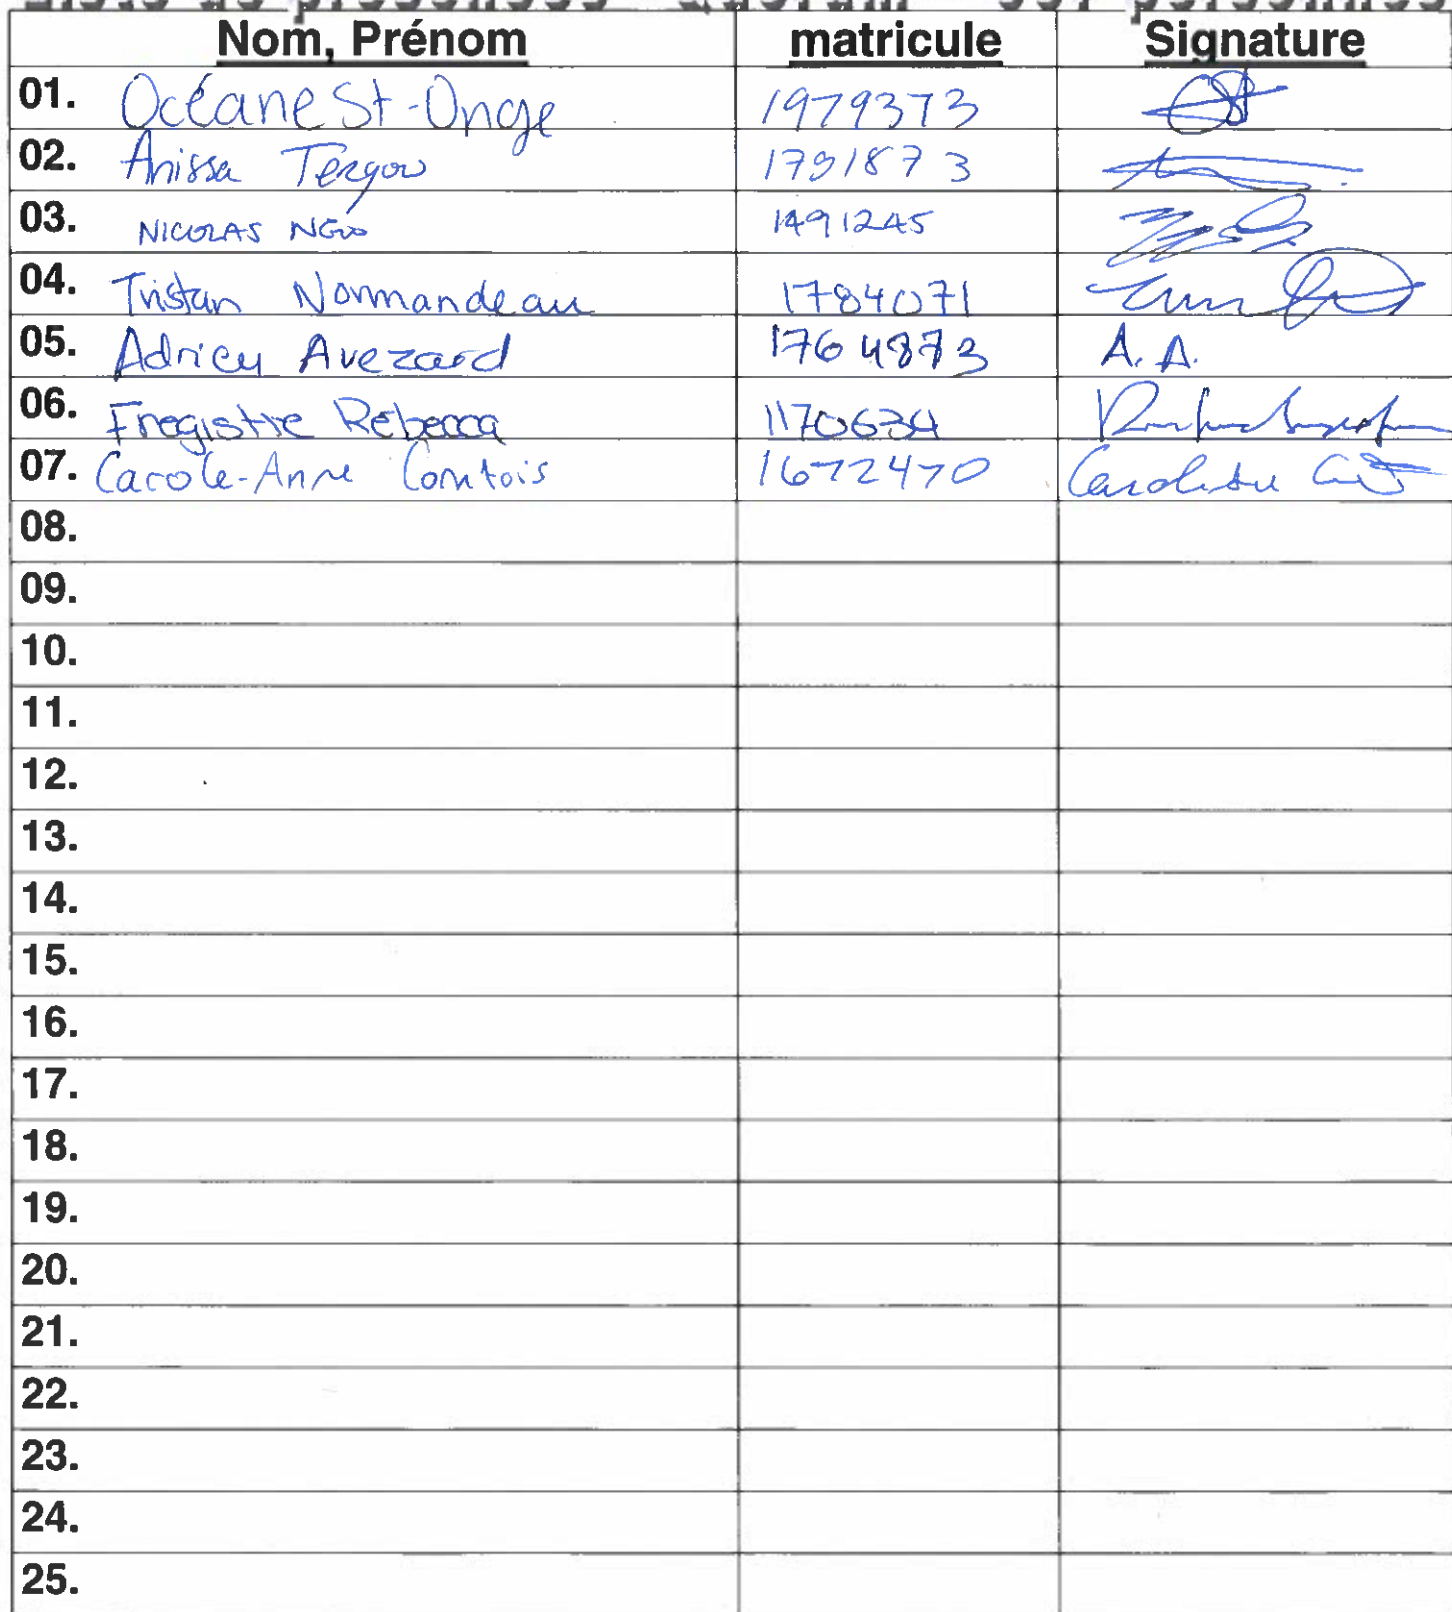 Liste de présences quorum personnes
Nom, Prénom matricule Signature
01. Océane St-Onge 1979373
02. Anissa 1791873
03. NICOLAS NGÔ 1491245
04. Tristan Normandeau 1784071
05. Avezard 1764873 A. A.
06. Fregistre Rebecca 1170634
07. Carole-Anne Comtois 1672470
08.
09.
10.
11.
12.
13.
14.
15.
16.
17.
18.
19.
20.
21.
22.
23.
24.
25.